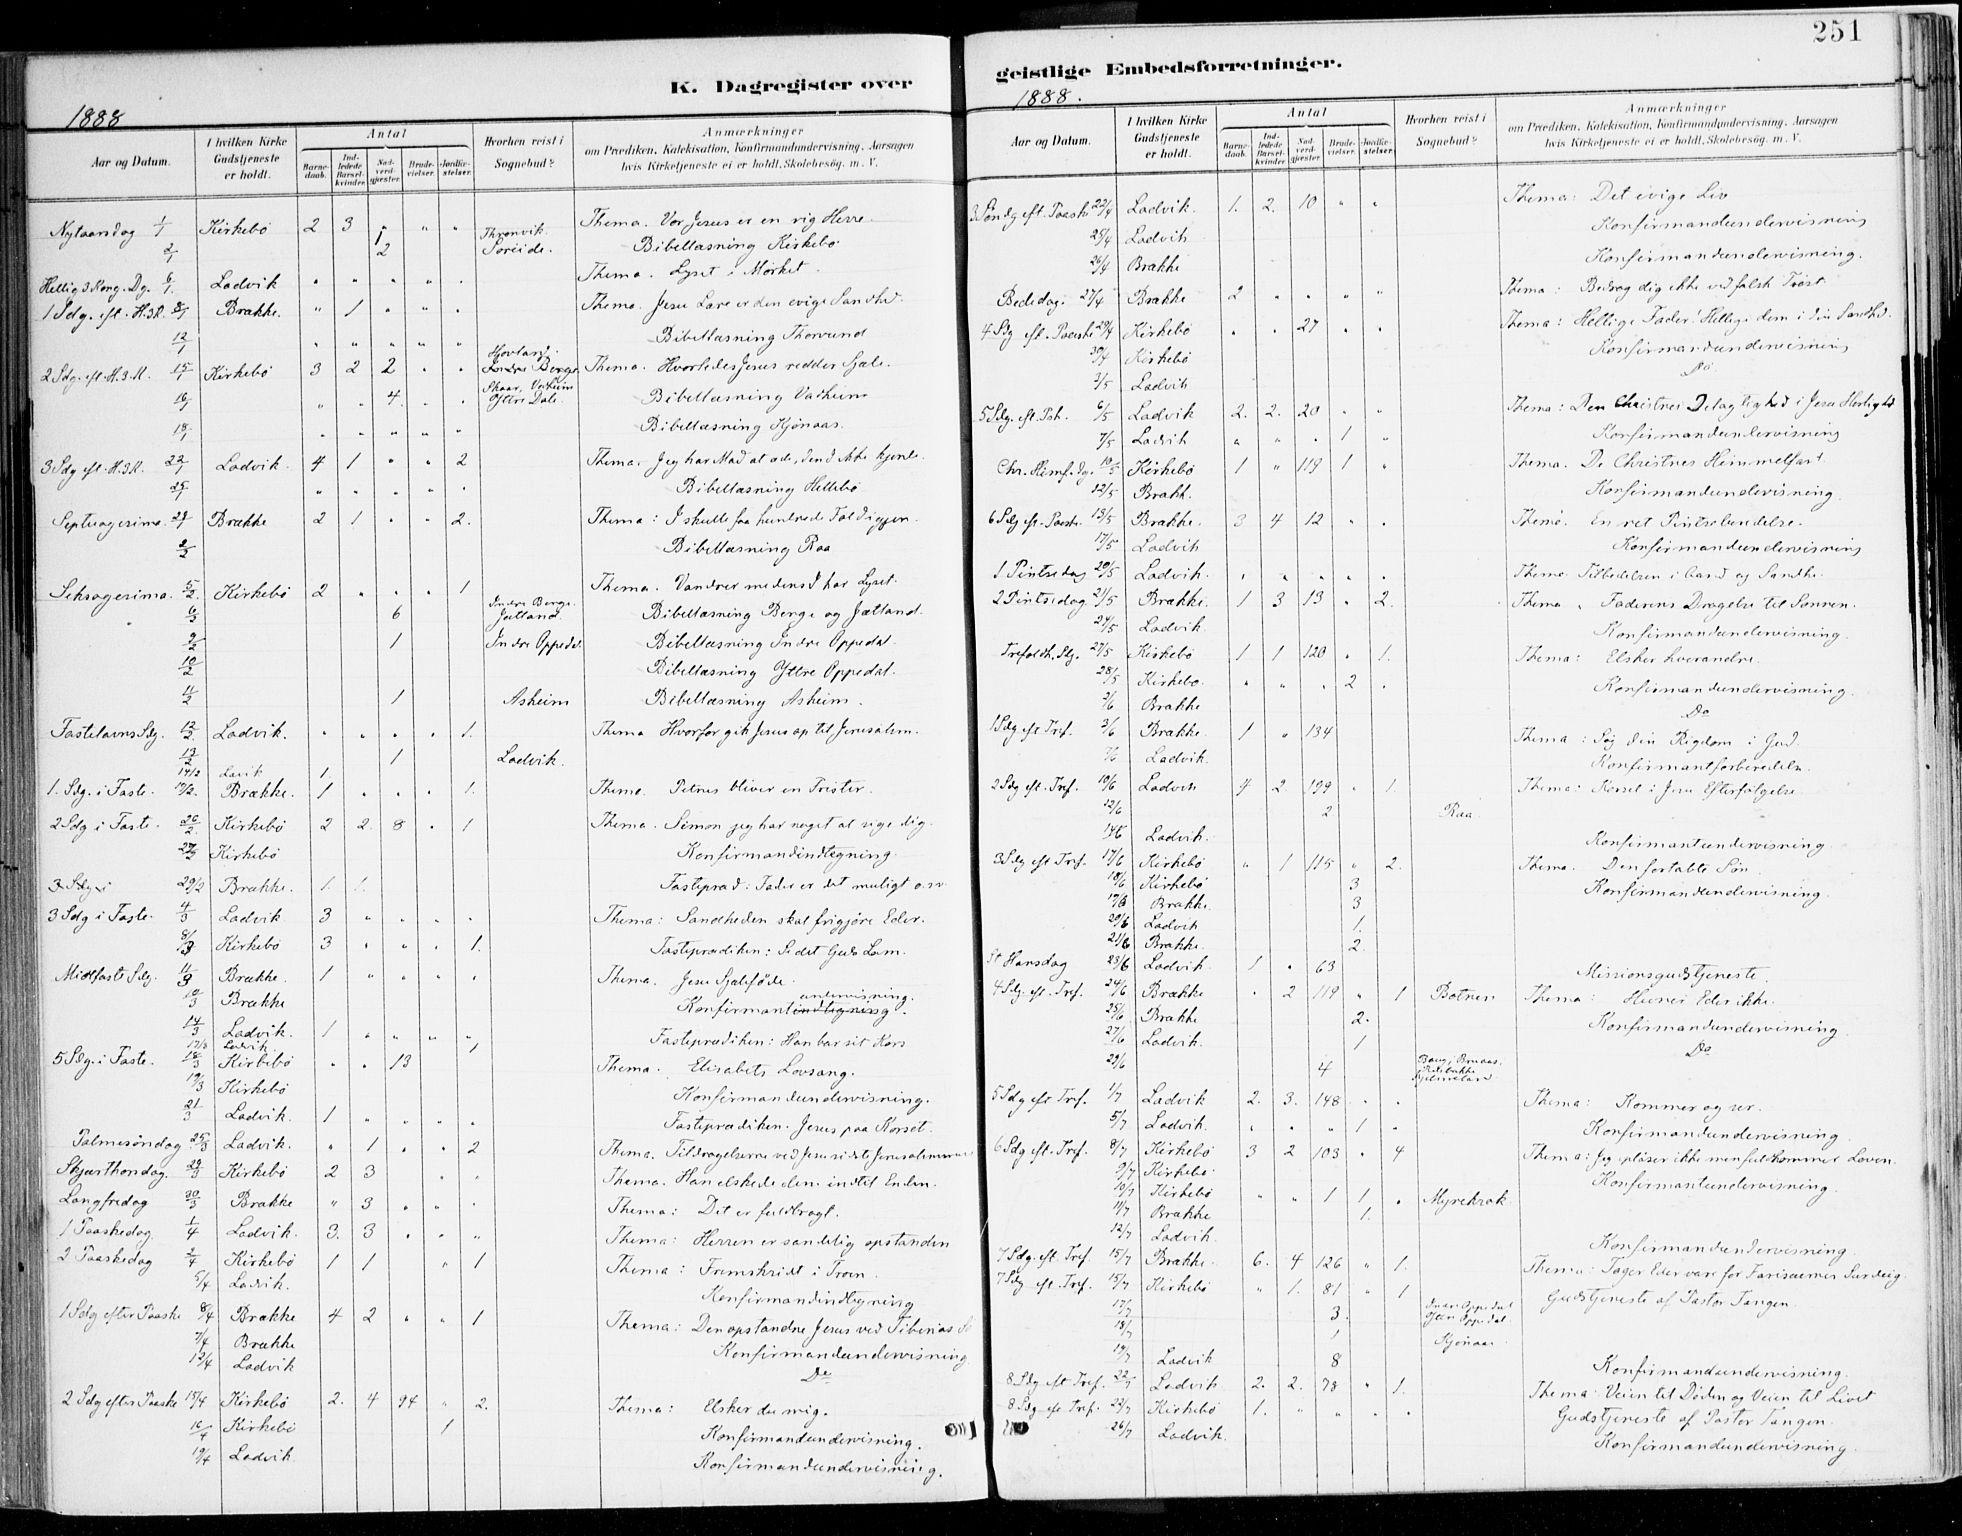 251
K. Dagregister over
1888
Aar og Datum.
I hvilken Kirke Gudstjeneste er holdt.
Antal
Barne-daab.
Ind-ledede Barsel-kvinder.
Nad-verd-gjæster.
Brude-vielser.
Jordfæ-stelser.
Hvorhen reist i Sognebud?
Anmærkninger
om Prædiken, Katekisation, Konfirmandundervisning, Aarsagen
hvis Kirketjeneste ei er holdt, Skolebesög. m. V.
Nytaarsdag 1/1 Kirkebö 2 3 " " " Thronvik Thema. Vor Jesus er en rig Herre.
2/1 2 Söreide. Bibellæsning Kirkebö
Hellig 3 Kong. Dg. 6/1 Ladvik " " " " " Thema. Lyset i Mörket.
1 Sdg. eft. H.3K. 8/1 Brække. " 1 " " " Thema. Jesu Lære er den evige Sandhed.
12/1 " " " " " Bibellæsning Thorvund
2 Sdg. eft. H.3K. 15/1 Kirkebö 3 2 2 " " Hovland. Indre Berge Thema. Hvorledes Jesus redder Sjæle.
16/1 " " 4 " " Skaar, Vadheim Ytre Dale. Bibellæsning Vadheim
18/1 " " " " " Bibellæsning Kjönaas.
3 Sdg eft. H.3K. 22/1 Ladvik. 4 1 " " 2 Thema. Jeg har Mad at æde, den I ikke kjende.
25/1 " " " " " Bibellæsning Hellebö
Septuagesima. 29/1 Brække 2 1 " " 2. Thema: I skulle faa hundrede Fold igjen.
2/2 Bibellæsning Raa
Seksagesima. 5/2 Kirkebö 2 " " " 1 Thema. Vandrer medens I har Lyset.
6 Indre Berge. Jatland. Bibellæsning Berge og Jætland.
9/2 1 Indre Oppedal. Bibellæsning Indre Oppedal.
10/2 Bibellæsning Yttre Oppedal.
11/2 1 Asheim Bibellæsning Asheim.
Fastelavns Sdg. 12/2 Ladvik. " " " " 1. Thema Hvorfor gik Jesus op til Jerusalem.
13/2 1 Ladvik.
14/2 Lavik 1
1. Sdg. i Faste. Brække. 1 " " " 1. Thema. Petrus bliver en Frister.
2 Sdg i Faste. 26/2 Kirkebö 2 2. 8 " 1 Thema. Simon jeg har noget at sige dig.
Kirkebö Konfirmandindtegning.
3 Sdg i 29/2 Brække. 1. 1. Fastepræd: Fader er det muligt o.sv
3 Sdg i Faste. 4/3 Ladvik 3 " " " " Thema: Sandheden skal frigjöre Eder.
8/3 Kirkebö 3 " " " 1. Fasteprædiken: Se det Guds Lam.
Midfaste Sdg. 11/3 Brække. 1 " " " " Thema. Jesu Sjæleföde.
Brække Konfirmantindtegning. undervisning.
14/3 Ladvik. 1 " " " " Fasteprædiken: Han bar sit Kors
17/3 Ladvik. 1
5 Sdg. i Faste. 18/3 Kirkebö " " 13 Thema. Elisabets Lovsang.
19/3 Kirkebö Konfirmandundervisning.
21/3 Ladvik. 1 " " " " Fasteprædiken. Jesus paa Korset.
Palmesöndag 25/3 Ladvik. " 1 " " 2 Thema. Tildragelserne ved Jesu sidste
Skjærthorsdag. 29/3 Kirkebö 2 3 " " Thema. Han elskede dem indtil Enden.
Langfredag 30/3 Brække " 3 " " " Thema: Det er fuldbragt.
1 Paaskedag 1/4 Ladvik. 3. 3 " " " Thema: Herren er sandelig opstanden
2 Paaskedag 2/4 Kirkebö 1 1 " 1 Thema: Fremskridt i Troen.
5/4 Ladvik. Konfirmandindtegning
1 Sdg efter Paaske 8/4 Brække 4 2 " " 1 Thema: Den opstandne Jesus ved Tiberias
Brække Konfirmandundervisning
12/4 Ladvik Do
2 Sdg efter Paaske 15/4 Kirkebö 2. 4 94 " 2. Thema: Elsker du mig.
16/4 Kirkebö 1 Konfirmandundervisning.
19/4 Ladvik. Konfirmandundervisning.
geistlige Embedsforretninger.
1888.
Aar og Datum.
I hvilken Kirke Gudstjeneste er holdt.
Antal
Barne-daab.
Ind-ledede Barsel-kvinder.
Nad-verd-gjæster.
Brude-vielser.
Jordfæ-stelser.
Hvorhen reist i Sognebud?
Anmærkninger
om Prædiken, Katekisation, Konfirmandundervisning, Aarsagen
hvis Kirketjeneste ei er holdt, Skolebesög. m. V.
3 Söndg eft. Paaske 22/4 Ladvik. 1. 2. 10 " " Thema: Det evige Liv
25/4 Ladvik Konfirmandundervisning
26/4 Brække Konfirmandundervisning.
Bededag. 27/4 Brække 2 " " " " Thema: Bedrag dig ikke ved falsk Tröst.
4 Sdg eft. Paaske 29/4 Kirkebö " " 27 " " Thema: Hellige Fader! Hellige dem i din Sandhed.
30/4 Kirkebö Konfirmandundervisning
3/5 Ladvik Do
5 Sdg. eft. Psk. 6/5 Ladvik 2. 2. 20 " " Thema: Den Christnes Delagtighed i Jesu Herlighed
7/5 Ladvik " " " 1 " Konfirmandundervisning
Chr. Himf. dg. 10/5 Kirkebö 1 " 119 1 " Thema. De Christnes Himmelfart
12/5 Brækk. Konfirmandundervisning
6 Sdg eft. Paaske 13/5 Brække. 3 4 12 " " Thema. En ret Pintsebendelse.
17/5 Ladvik Konfirmandundervisning
1 Pintsedag 20/5 Ladvik. " " " " " Thema. Tilbedelsen i Aand og Sandhe.
2 Pintsedag 21/5 Brække. 1 3 13 " 2. Thema " Faderens Dragelse til Sönnen.
24/5 Ladvik. Konfirmandundervisning.
Trefoldh. Sdg. 27/5 Kirkebö 1 1 120 " 1. Thema: Elsker hverandre.
28/5 Kirkebö. " " " 2 " Konfirmandundervisning.
2/6 Brække Do
1 Sdg eft Tref. 3/6 Brække. 1 " 134 Thema: Sög din Rigdom i Gud.
7/6 Ladvik. Konfirmantforberedelse.
2 Sdg eft. Tref. 10/6 Ladvik 4 2 199 " 1. Thema: Korset i Jesu Efterfölgelse
12/6 2 Raa
14/6 Ladvik. Konfirmantundervisning.
3 Sdg eft Tref. 17/6 Kirkebö " 1 115 " 2. Thema. Den fortabte Sön.
18/6 Kirkebö 3 Konfirmandundervisning.
Brække. 3
20/6 Ladvik 1.
21/6 Brække. 2.
St Hansdag 23/6 Ladvik. 1 " 63 Missionsgudstjeneste.
4 Sdg. eft. Tref. 24/6 Brække " 2 119 " 1 Botnen Thema: Hevner Eder ikke.
25/6 Brække 2. Konfirmandundervisning.
27/6 Ladvik. 1 Do
29/6 4
5 Sdg eft Tref. 1/7 Ladvik 2. 3. 148 " " Thema: Kommer og ser.
5/7 Ladvik. " " " 1 " Konfirmandundervisning.
6 Sdg eft. Tref. 8/7 Kirkebö 3 2 103 " 4 Thema: Jeg oplöser ikke men fuldkommer Loven.
9/7 Kirkebö. Konfirmantundervisning.
10/7 Kirkebö " " 1 1 " Myrekrok
11/7 Brække 1.
12/7 Ladvik. Konfirmandundervisning.
7 Sdg. eft. Tref. 15/7 Brække. 6. 4 126 " 1. Thema: Tager Eder vare for Farisæernes Surdeig.
7 Sdg eft. Tref. 15/7 Kirkebö " 1. 81 " 1 Gudstjeneste af Pastor Tangen.
17/7 3. Indre Oppedal Ytre Oppedal.
18/7 1 Kjönaas
19/7 Ladvik 8 Konfirmandundervisning.
8 Sdg eft Tref. 22/7 Ladvik. 2. 2. 78 " 1. Thema Veien til Döden og Veien til Livet
8 Sdg. eft Tref. Kirkebö 1. " " " " Gudstjeneste af Pastor Tangen.
26/7 Ladvik. Konfirmandundervisning.